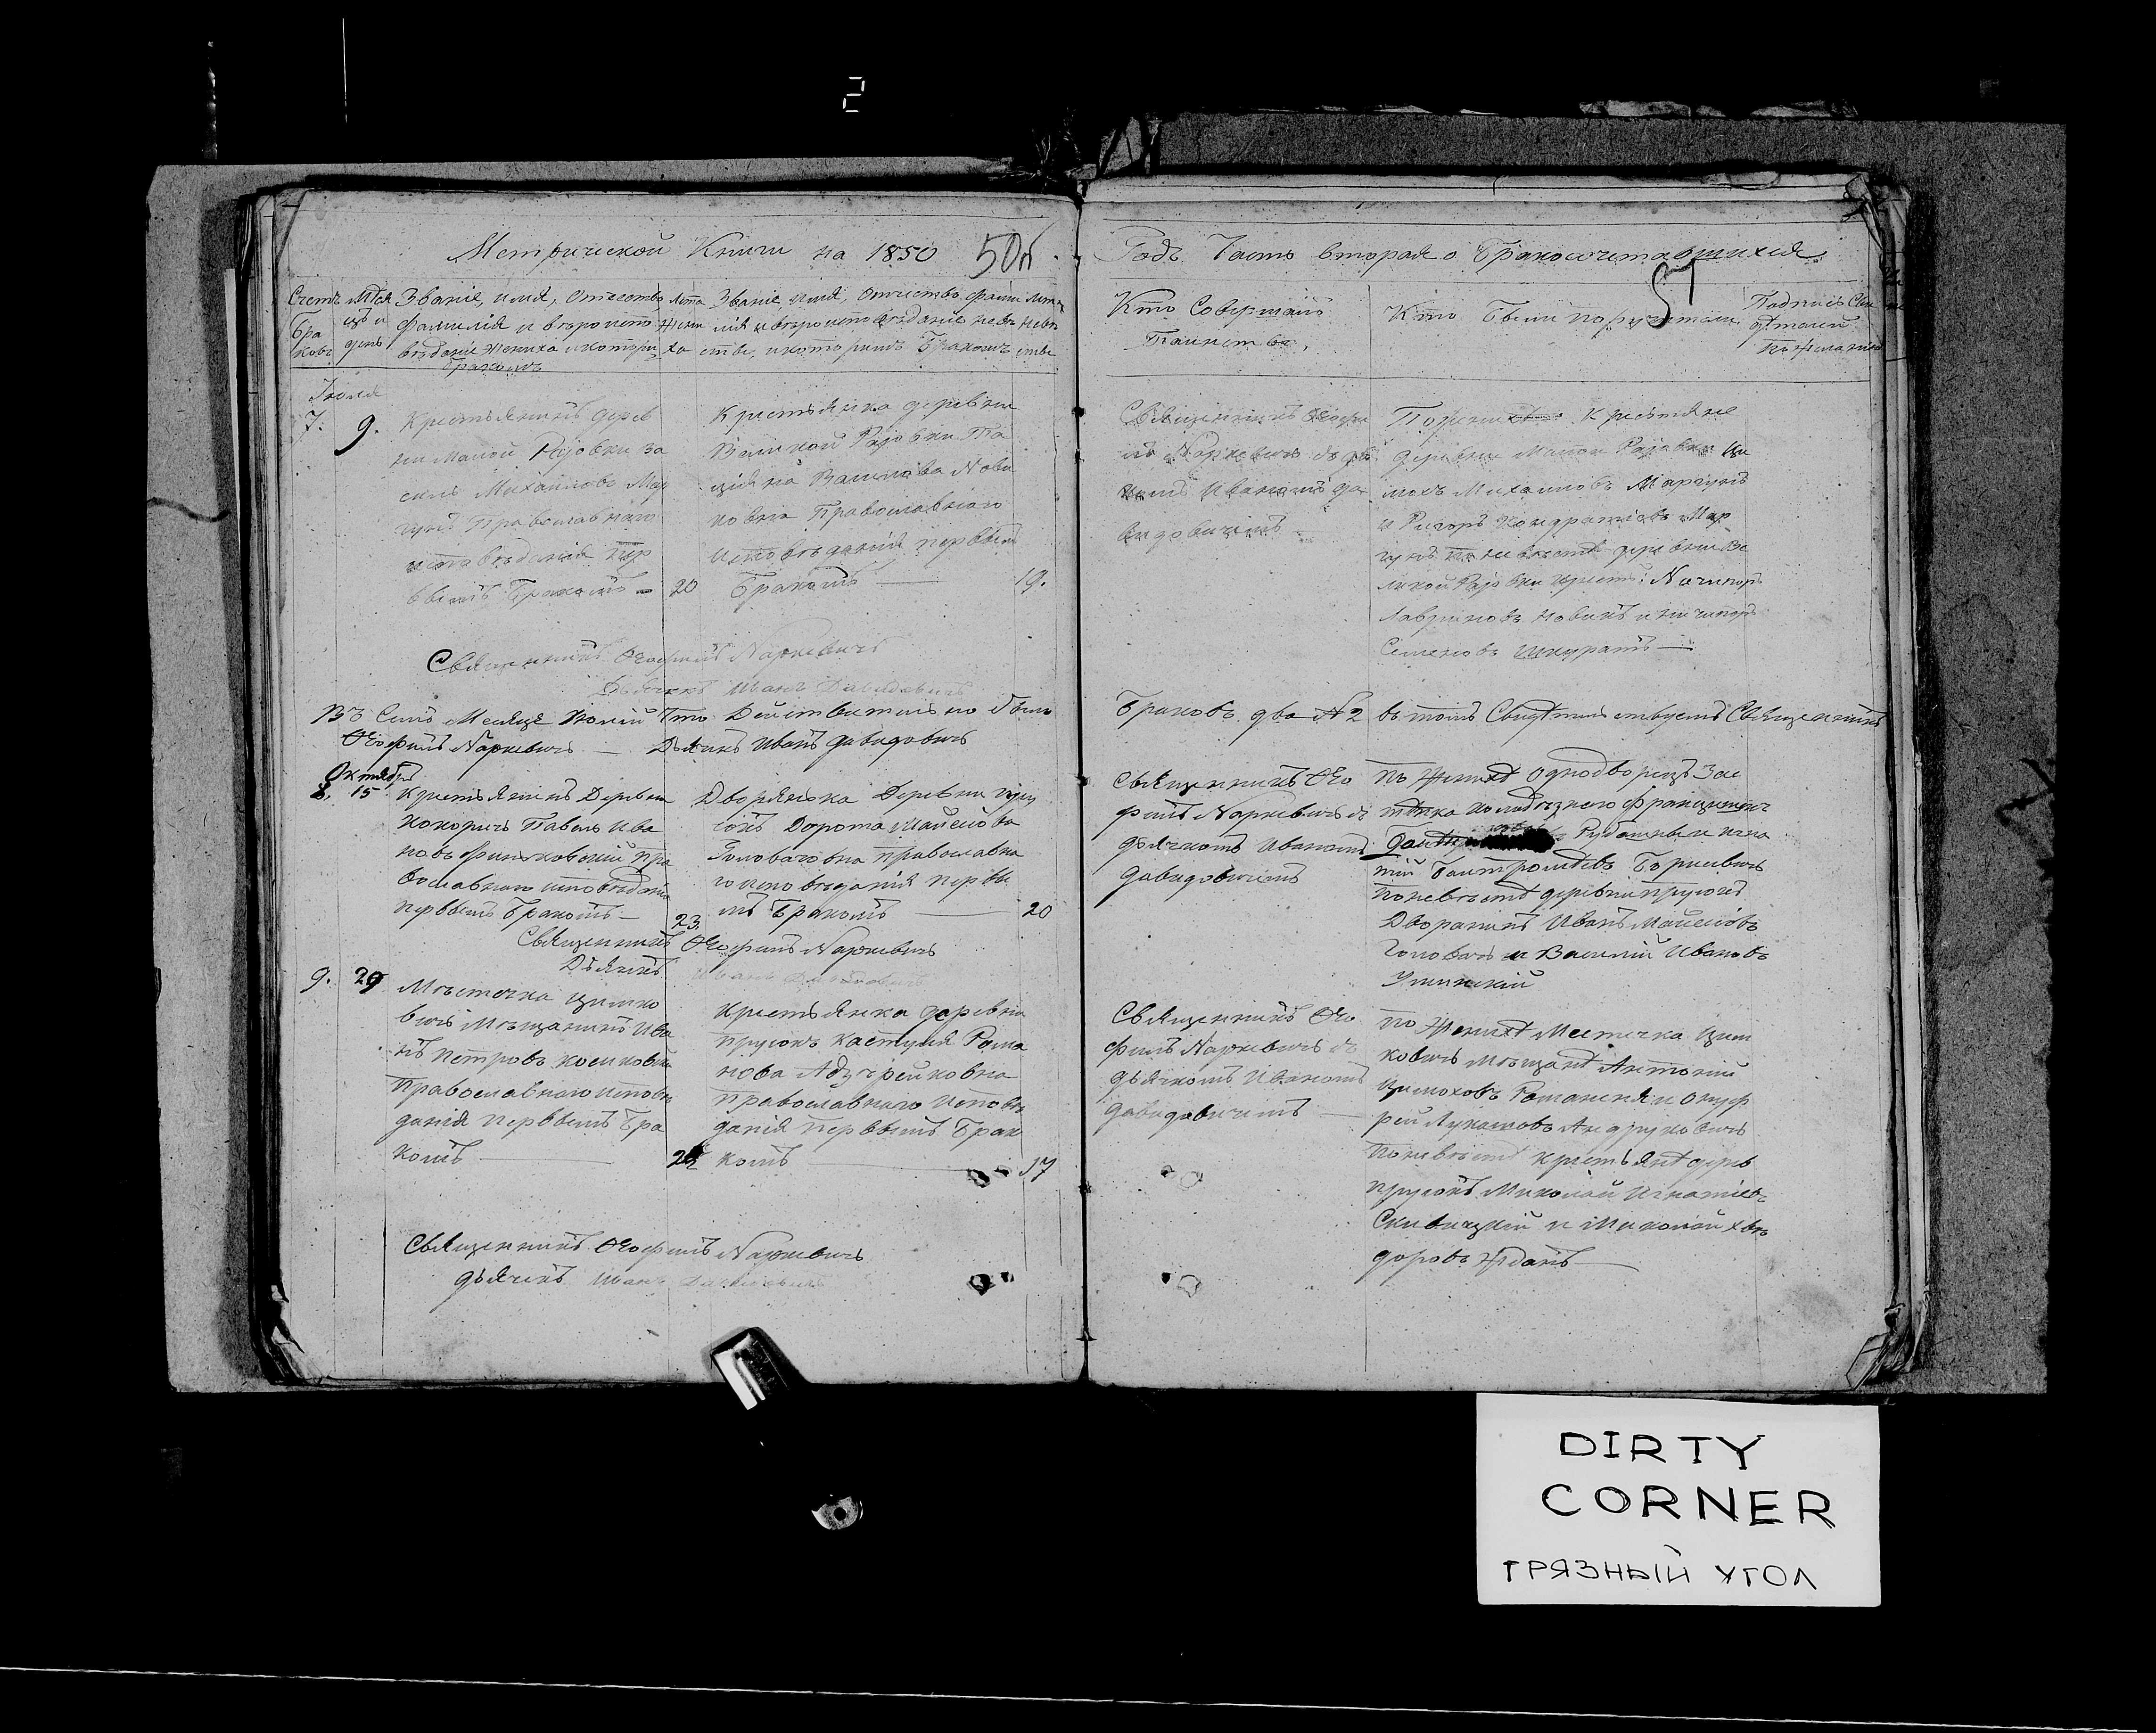 2
Метрической Книги на 1850
50об.
Годъ Часть вторая о Бракосочетавшихся
51
Счетъ
Бра
ковъ
Мѣся
цъ и
день
Званіе, имя, отчество
Фамилія и вѣроиспо
вѣданіе жениха и которы
Бракомъ
Лѣта
Жени
ха
Званіе имя, отчество, фами
лія и вѣроисповѣданіе невѣ
сты, и которымъ Бракомъ
Лѣта
Невѣ
сты
Кто Совершалъ
Таинство,
Кто Были поручители
Подпись Сви
дѣтелей
По желанію
Іюля
7. 9.
Крестьянинъ дерев
ни Малой Раіовки Ва
силь Михайловъ Мар
гунъ Православнаго
исповѣданія пер
вымъ Бракомъ
20
Крестьянка деревни
Великой Раіовки Та
ціяна Василева Нови
ковна Православного
исповѣданія первым
Бракомъ
19.
Священникъ Ѳеофи
лъ Наркевичъ съ дья
комъ Иваномъ Да
видовичемъ
По женихѣ Крестяне
деревни Малой Раіовки
Михаиловъ Маргунъ
и Ригоръ Кондратовъ Мар
гунъ по невестѣ деревни Ве
ликой Раіовки крест: Ничипоръ
Лавриновъ Новикъ и Ничипоръ
Семеновъ Шкуратъ
Священникъ Ѳеофилъ Наркевичъ
Дьячокъ Иванъ Давидовичъ
Въ Семъ Месяце Іюлій Что Действительно было
Браковъ два № 2 въ томъ Свидѣтельствуетъ Священникъ
Ѳеофилъ Наркевичъ Дьячокъ Иванъ Давидовичъ
Октября
8. 15
Крестьянинъ Деревни
Кокоричъ Павелъ Ива
новъ Финьковский Пра
вославного исповѣдани
первымъ Бракомъ
23.
Дворянка Деревни Прус
сокъ Дорота
Головачовна Православна
го исповѣданія первы
мъ Бракомъ
20
Священникъ Ѳео
филъ Наркевичъ съ
дьячкомъ Иваномъ
Давидовичемъ
По Женихѣ Однодворецъ Зас
Рубашны и Игна
тій Борисевичъ
по невѣстѣ деревни Прусокъ
Дворанинъ Иванъ
Головачъ и Василий Ивановъ
Священникъ Ѳеофилъ Наркевичъ
Дьячекъ Иванъ Давидовичъ
9. 29
Мѣстечка Цимко
вичъ Мѣщанинъ Ива
нъ Петровъ
Православного исповѣ
данія первымъ Бра
комъ
Крестьянка деревни
Прусокъ Рома
нова
Православного исповѣ
данія первымъ Брак
комъ
17
Священникъ Ѳео
филъ Наркевичъ съ
дьячкомъ Иваномъ
Давидовичемъ
по Женихѣ Местечка Цим
ковичъ мѣщанѣ Антоній
Цимоховъ и Онуф
рей Лукашовъ Андруковичъ
по невѣстѣ крестьянѣ дерев
Прусокъ Миколай Игнатіевъ
Скивицкій и Миколай Хве
доровъ Жданъ
Священникъ Ѳеофилъ Наркевичъ
дьячекъ Иванъ Давидовичъ
DIRTY
CORNER
ГРЯЗНЫЙ УГОЛ